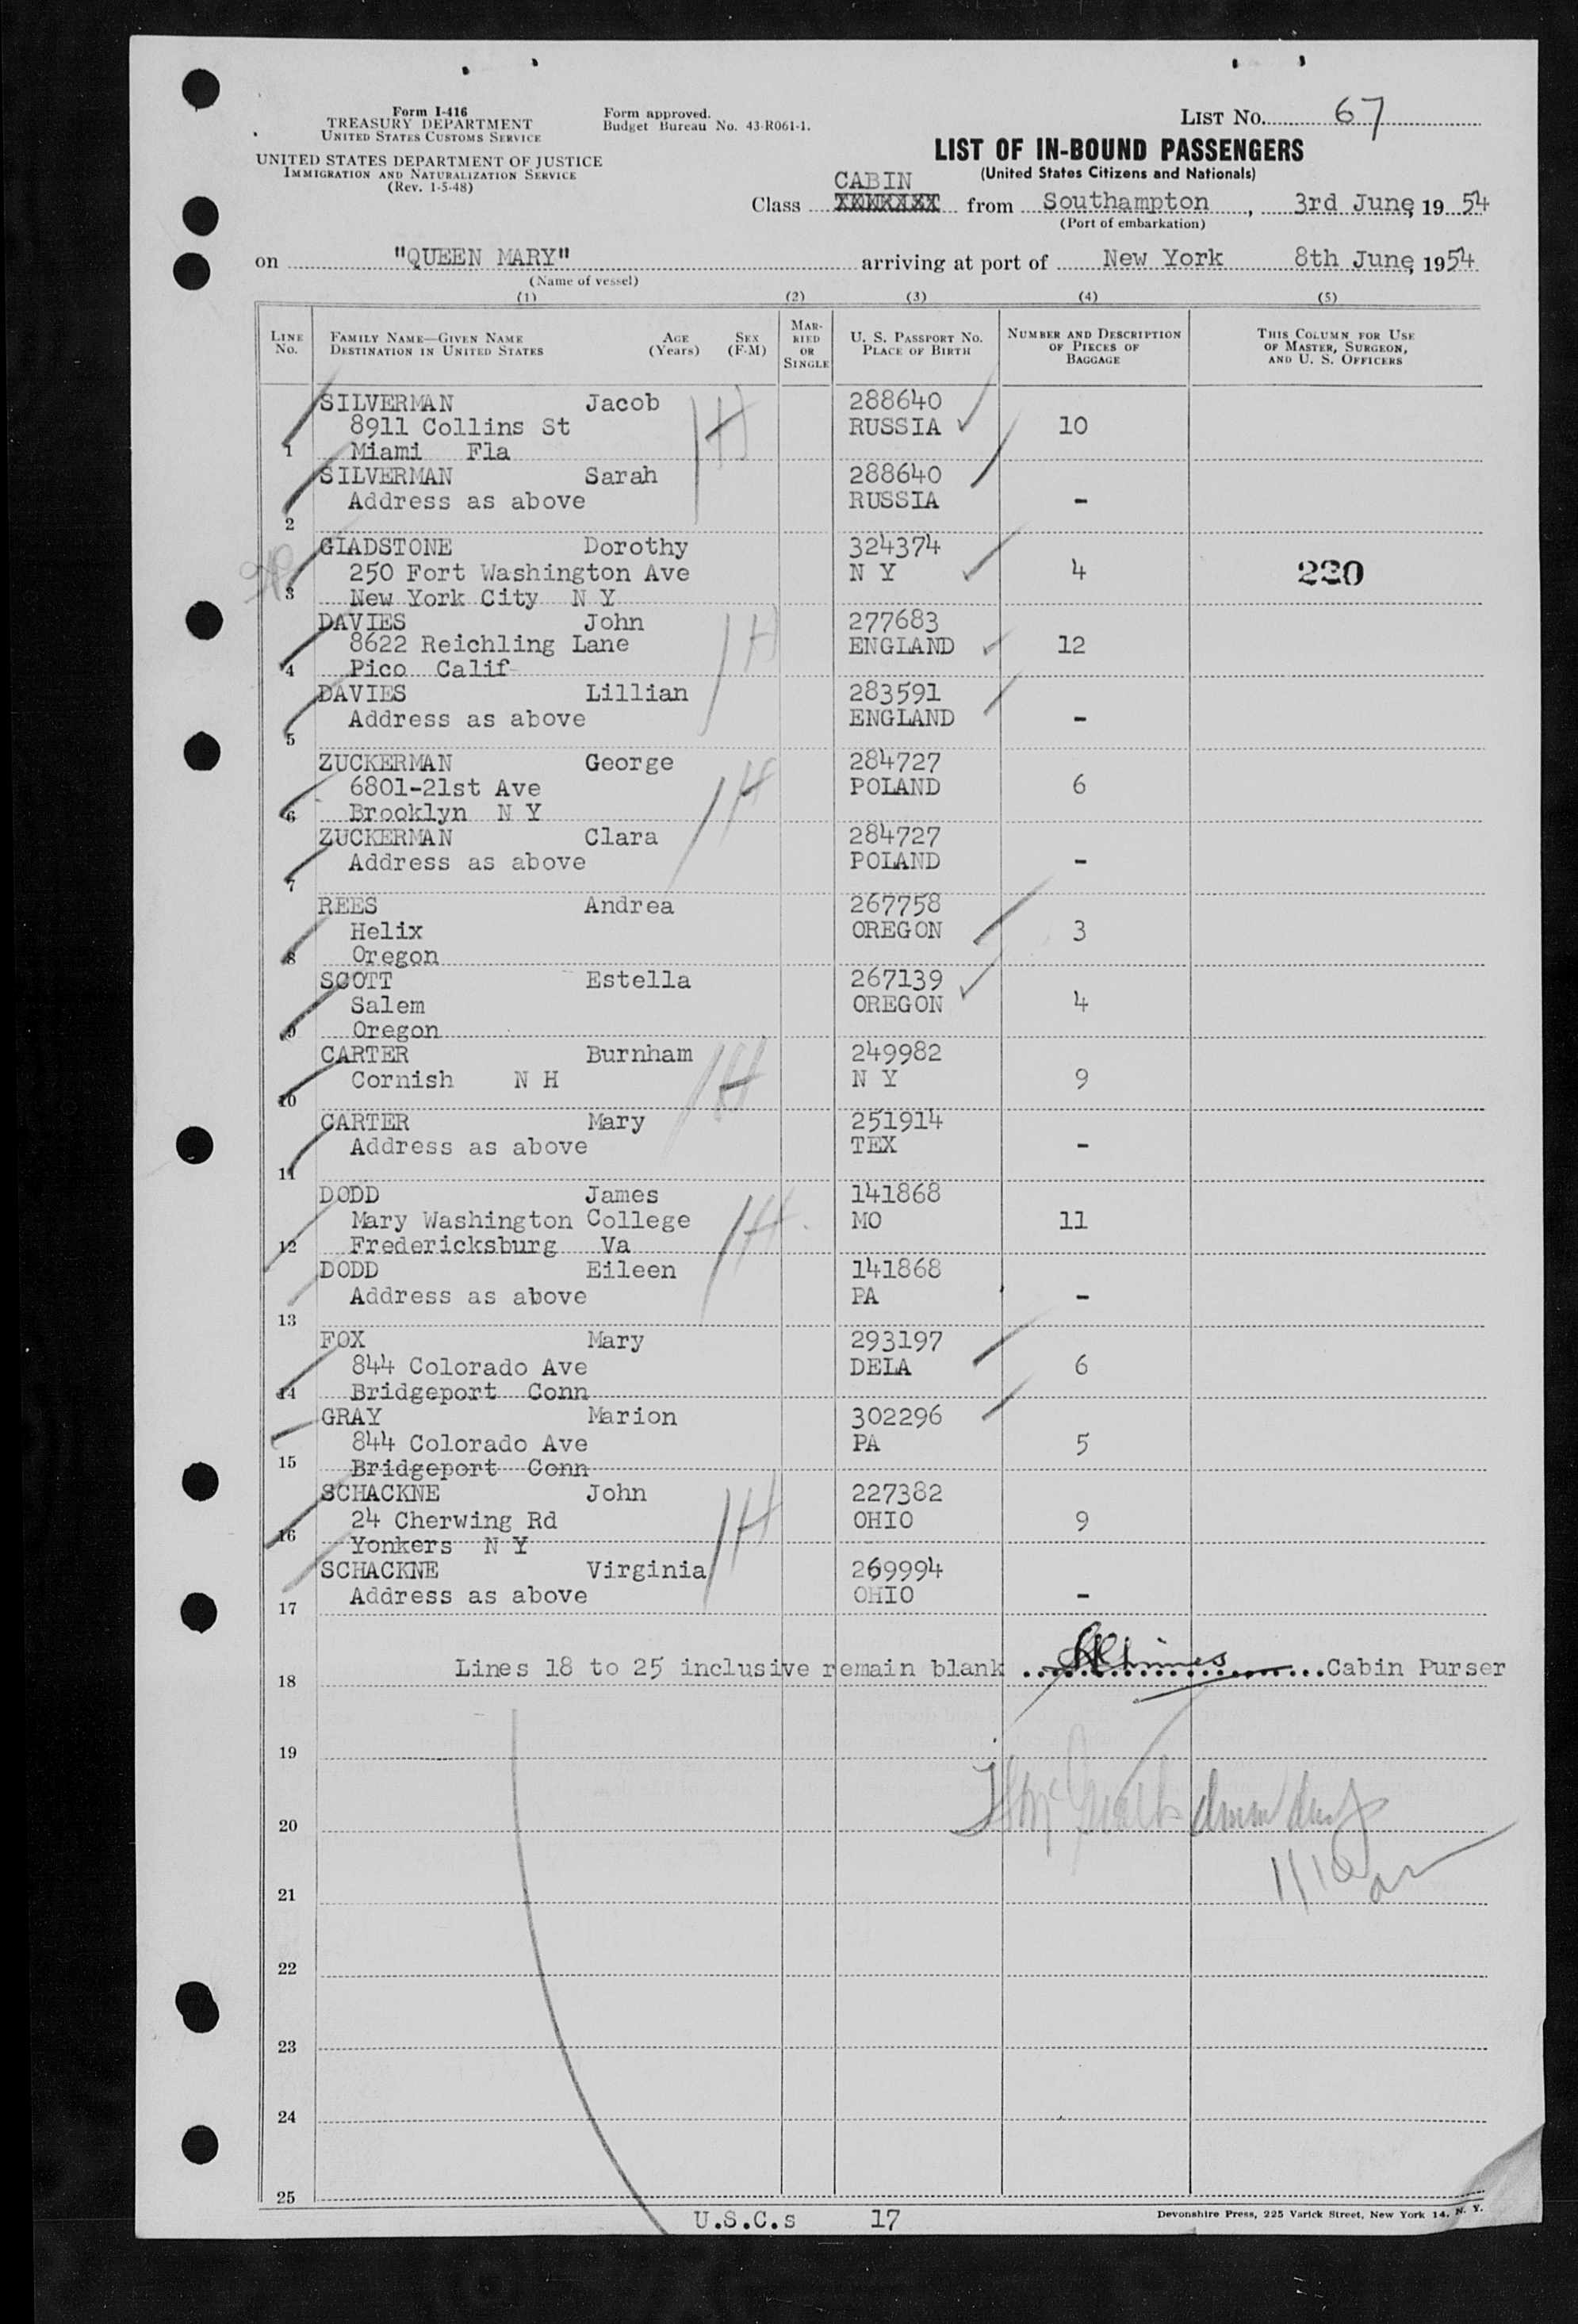 Form I-416
TREASURY DEPARTMENT
UNITED STATES CUSTOMS SERVICE
UNITED STATES DEPARTMENT OF JUSTICE
IMMIGRATION AND NATURALIZATION SERVICE
(Rev. 1-5-48)
Form approved.
Budget Bureau No. 43-R061-1.
LIST NO. 67
LIST OF IN-BOUND PASSENGERS
(United States Citizens and Nationals)
CABIN
Class from Southampton, 3rd June, 1954
(Port of embarkation)
on "QUEEN MARY" arriving at port of New York 8th June, 1954
(Name of vessel)
(1) (2) (3) (4) (5)
LINE No. FAMILY NAME—GIVEN NAME DESTINATION IN UNITED STATES AGE (Years) SEX (F-M) MARRIED OR SINGLE U. S. PASSPORT NO. PLACE OF BIRTH NUMBER AND DESCRIPTION OF PIECES OF BAGGAGE THIS COLUMN FOR USE OF MASTER, SURGEON, AND U. S. OFFICERS
SILVERMAN Jacob 288640
8911 Collins St RUSSIA 10
1 Miami Fla
SILVERMAN Sarah 288640
Address as above RUSSIA -
2
GIADSTONE Dorothy 324374
250 Fort Washington Ave N Y 4 220
3 New York City N Y
DAVIES John 277683
8622 Reichling Lane ENGLAND 12
4 Pico Calif
DAVIES Lillian 283591
Address as above ENGLAND -
5
ZUCKERMAN George 284727
6801-21st Ave POLAND 6
6 Brooklyn N Y
ZUCKERMAN Clara 284727
Address as above POLAND -
7
REES Andrea 267758
Helix OREGON 3
8 Oregon
SCOTT Estella 267139
Salem OREGON 4
9 Oregon
CARTER Burnham 249982
Cornish N H N Y 9
10
CARTER Mary 251914
Address as above TEX -
11
DODD James 141868
Mary Washington College MO 11
12 Fredericksburg Va
DODD Eileen 141868
Address as above PA -
13
FOX Mary 293197
844 Colorado Ave DELA 6
14 Bridgeport Conn
GRAY Marion 302296
844 Colorado Ave PA 5
15 Bridgeport Conn
SCHACKNE John 227382
24 Cherwing Rd OHIO 9
16 Yonkers N Y
SCHACKNE Virginia 269994
Address as above OHIO -
17
Lines 18 to 25 inclusive remain blank Cabin Purser
18
19
20
21
22
23
24
25
U.S.C.s 17
Devonshire Press, 225 Varick Street, New York 14, N. Y.